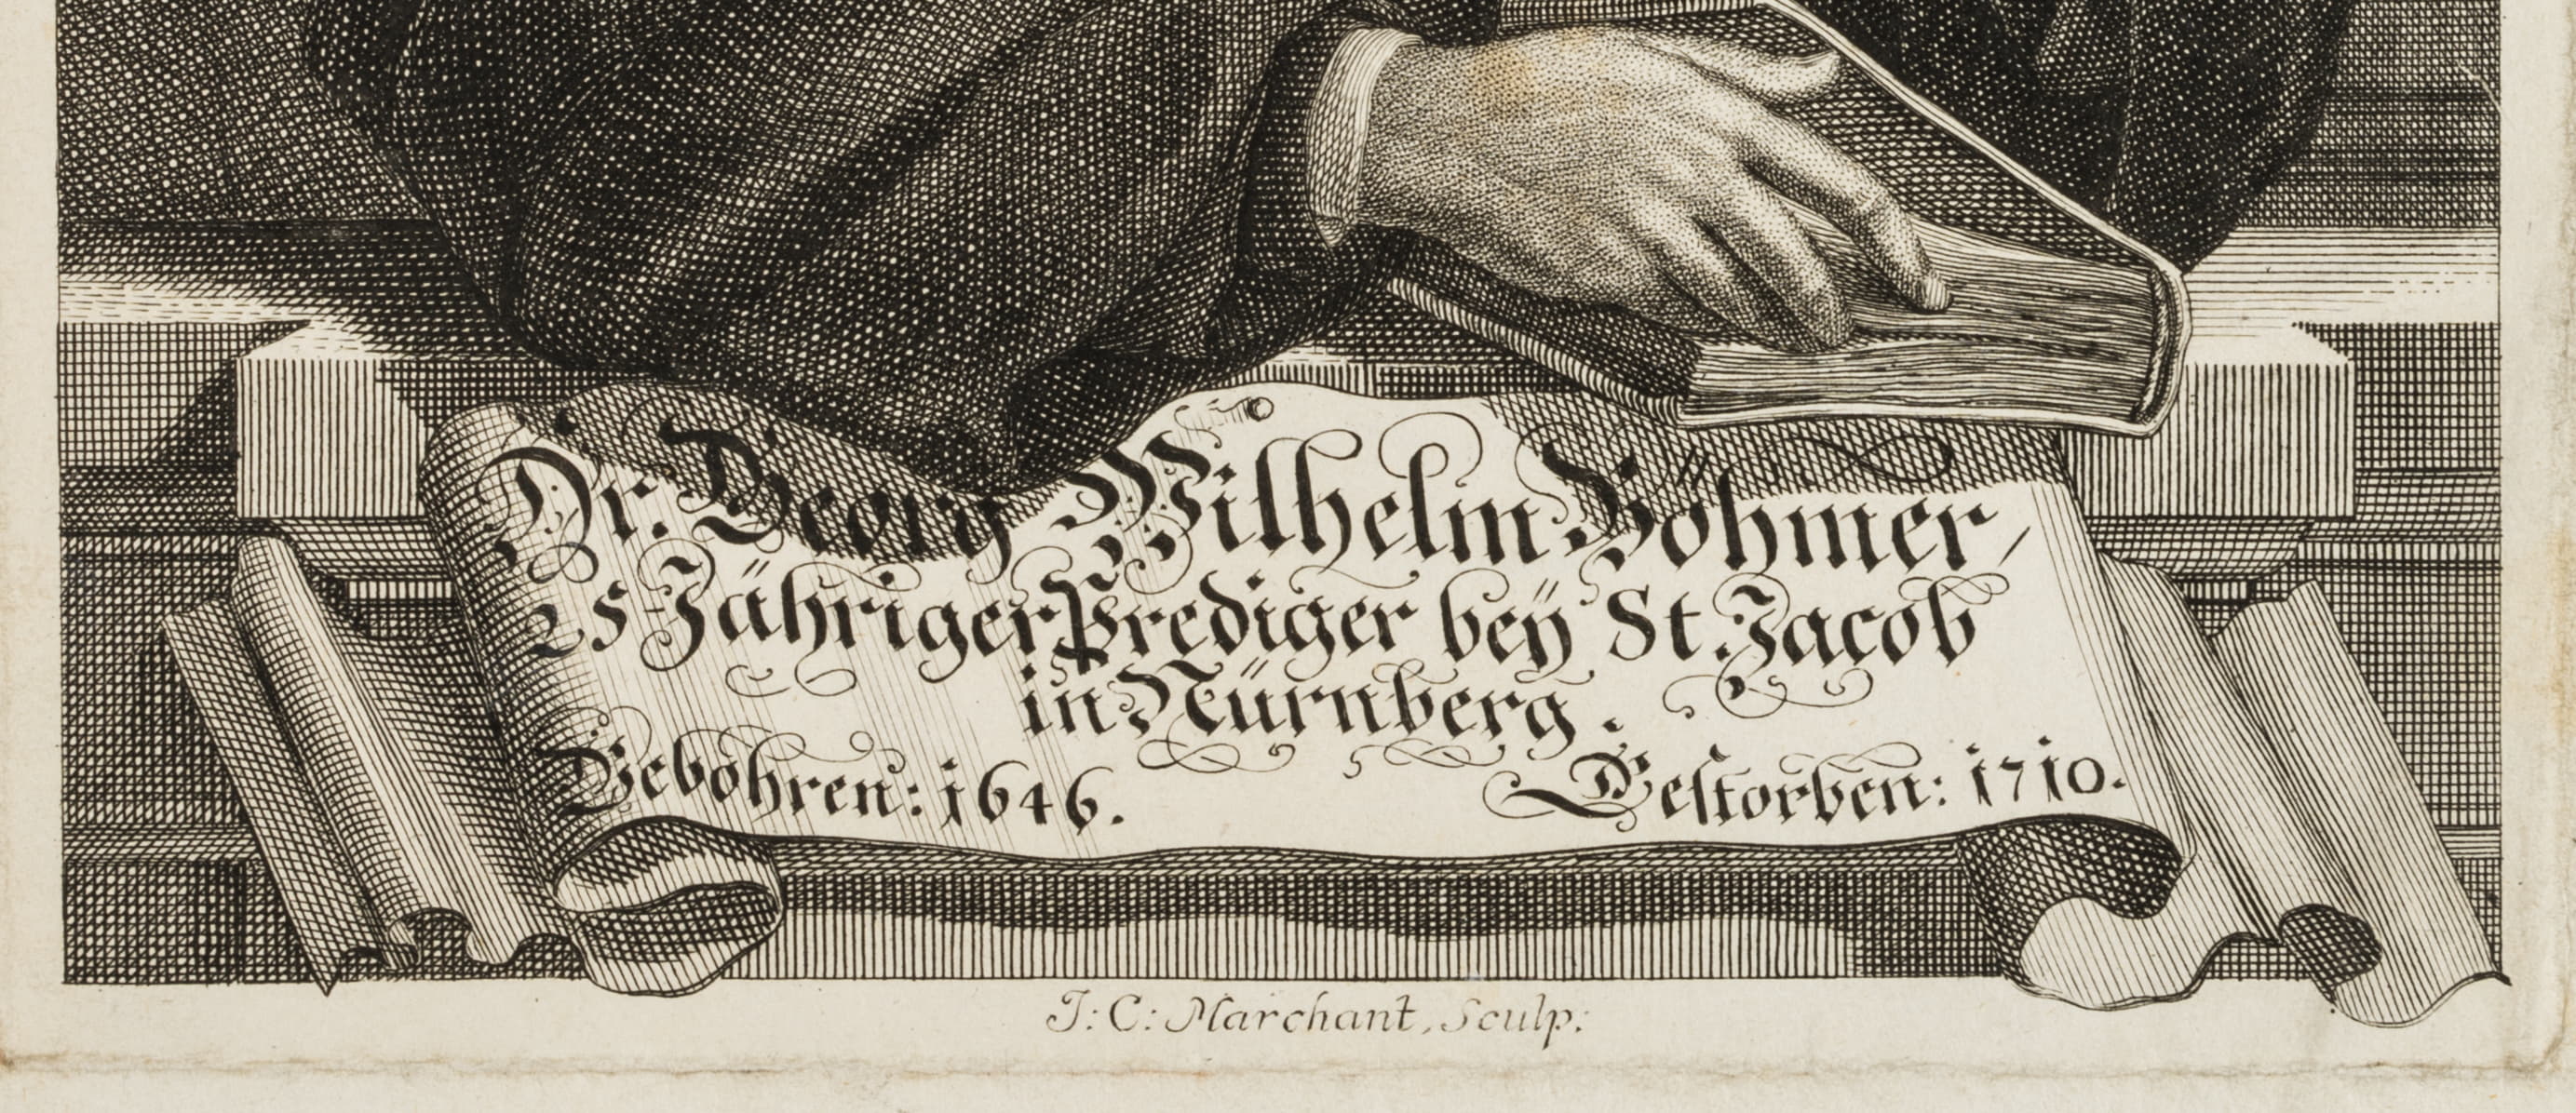 Dr. Georg Wilhelm Böhmer,
25-Jähriger Prediger beÿ St. Jacob
in Nürnberg.
Gebohren: 1646. Gestorben: 1710.
J: C: Marchant, Sculp: